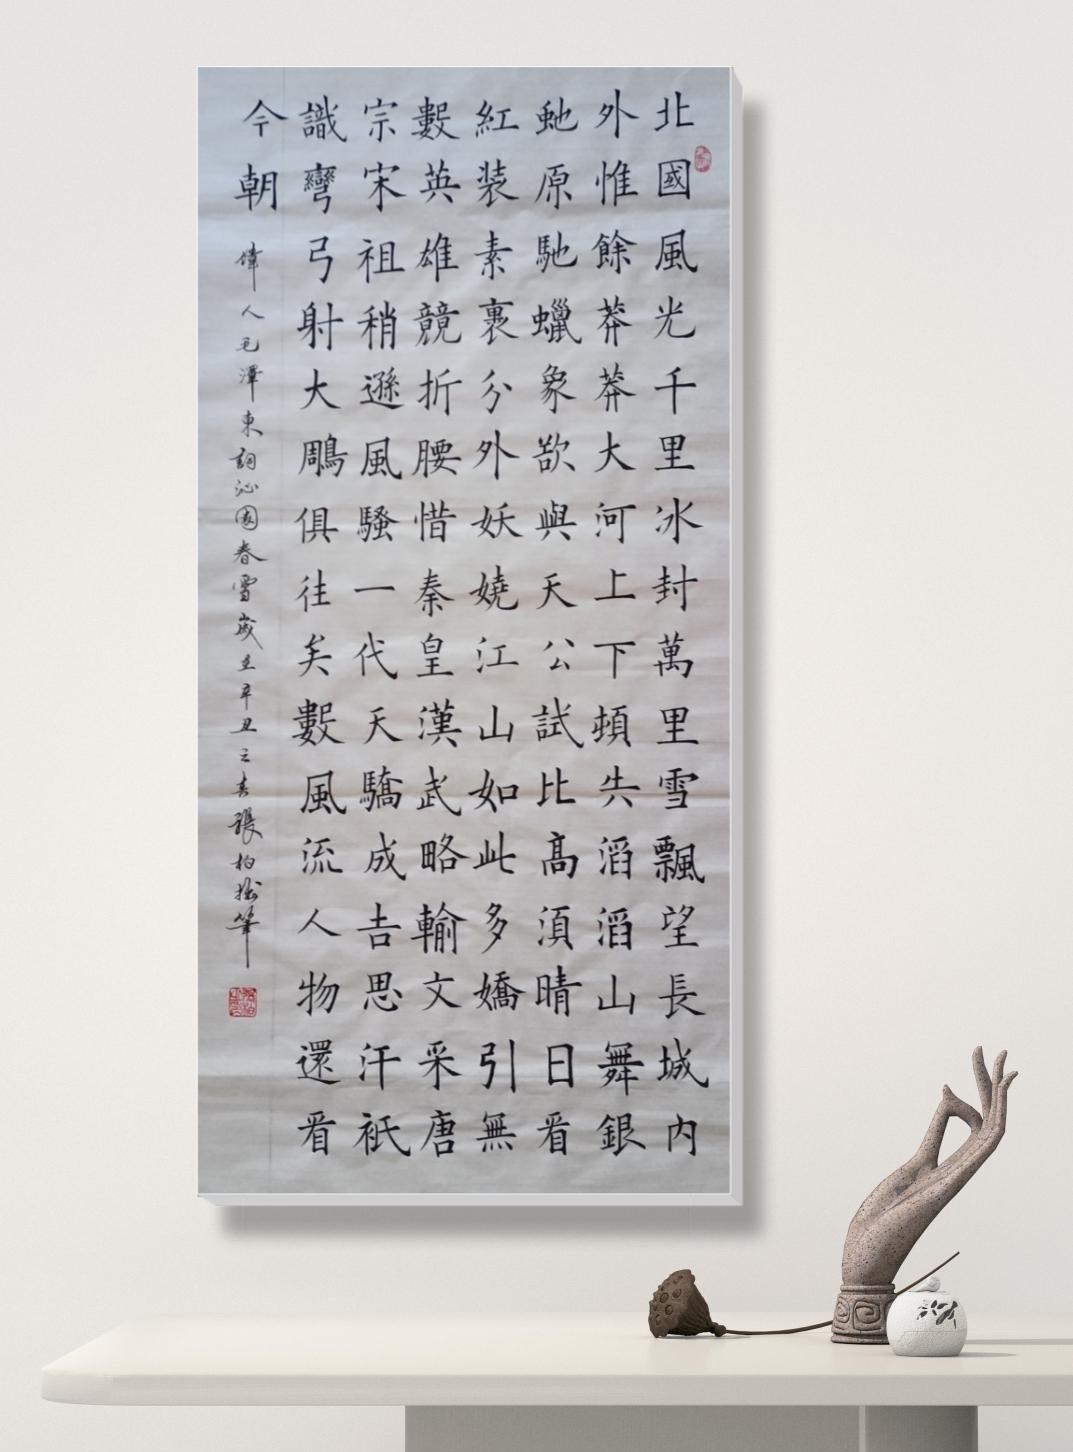 北國風光千里冰封萬里雪飄望長城内
外惟餘莽莽大河上下頓失滔滔山舞銀
虵原馳蠟象欲與天公試比高須晴日看
紅装素裹分外妖嬈江山如此多嬌引無
數英雄競折腰惜秦皇漢武略輸文采唐
宗宋祖稍遜風騷一代天驕成吉思汗祇
識彎弓射大鵰俱往矣數風流人物還看
今朝
偉人毛澤東詞沁園春雪歲在辛丑之春張柏松筆